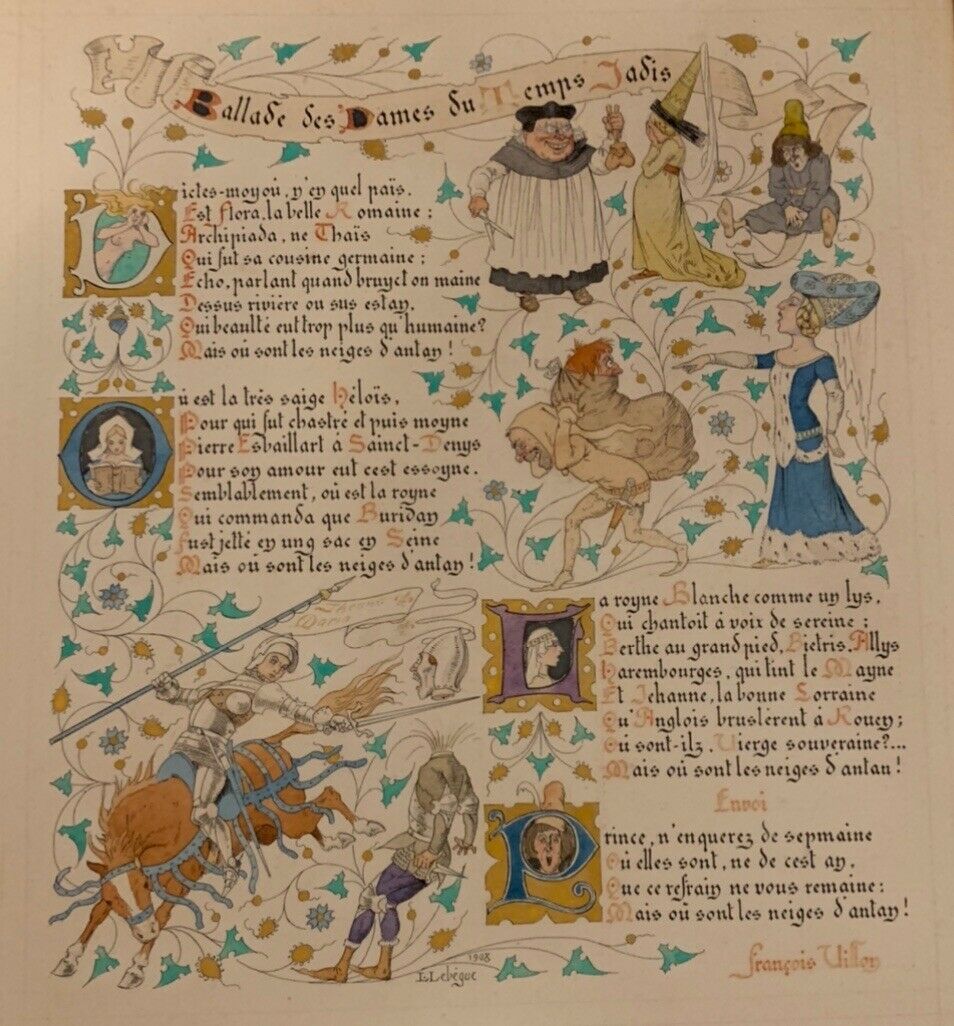 Ballade des Dames du Temps Jadis
Dictes-moy où, n'en quel païs,
Est Flora, la belle Romaine ;
Archipiada, ne Thaïs
Qui fut sa cousine germaine ;
Echo, parlant quand bruyct on maine
Dessus rivière ou sus estan,
Qui beaulté eut trop plus qu'humaine?
Mais où sont les neiges d'antan !
Où est la très saige Helois,
Pour qui fut chastré et puis moyne
Pierre Esbaillart à Sainct-Denys
Pour son amour eut cest essoyne.
Semblablement, où est la royne
Qui commanda que Buridan
Fust jetté en ung sac en Seine
Mais où sont les neiges d'antan !
La royne Blanche comme un lys,
Qui chantoit à voix de sereine ;
Berthe au grand pied, Bietris, Allys
Harembourges, qui tint le Mayne
Et Jehanne, la bonne Lorraine
Qu'Anglois bruslèrent à Rouen ;
Où sont-ilz, Vierge souveraine?...
Mais où sont les neiges d'antan !
Envoi
Prince, n'enquerez de sepmaine
Où elles sont, ne de cest an,
Que ce refrain ne vous remaine :
Mais où sont les neiges d'antan !
François Villon
Maria
1908
L. Lebègue